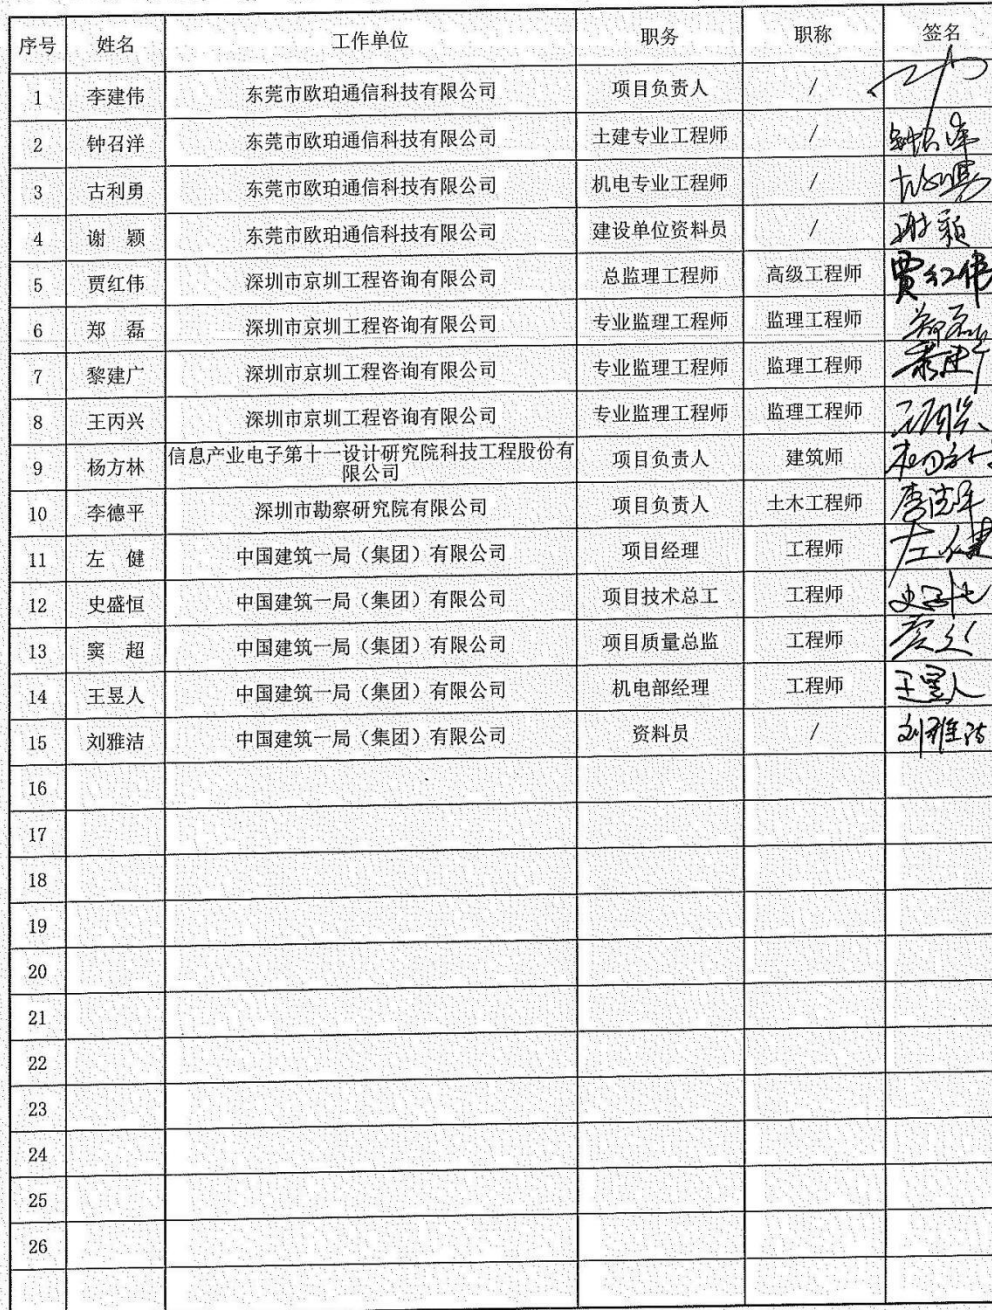 序号 姓名 工作单位 职务 职称 签名
1 李建伟 东莞市欧珀通信科技有限公司 项目负责人 /
2 钟召洋 东莞市欧珀通信科技有限公司 土建专业工程师 /
3 古利勇 东莞市欧珀通信科技有限公司 机电专业工程师 /
4 谢 颖 东莞市欧珀通信科技有限公司 建设单位资料员 / 谢颖
5 贾红伟 深圳市京圳工程咨询有限公司 总监理工程师 高级工程师 贾红伟
6 郑 磊 深圳市京圳工程咨询有限公司 专业监理工程师 监理工程师
7 黎建广 深圳市京圳工程咨询有限公司 专业监理工程师 监理工程师
8 王丙兴 深圳市京圳工程咨询有限公司 专业监理工程师 监理工程师
9 杨方林 信息产业电子第十一设计研究院科技工程股份有
限公司 项目负责人 建筑师
10 李德平 深圳市勘察研究院有限公司 项目负责人 土木工程师 李德平
11 左 健 中国建筑一局（集团）有限公司 项目经理 工程师 左健
12 史盛恒 中国建筑一局（集团）有限公司 项目技术总工 工程师
13 窦 超 中国建筑一局（集团）有限公司 项目质量总监 工程师
14 王昱人 中国建筑一局（集团）有限公司 机电部经理 工程师 王昱人
15 刘雅洁 中国建筑一局（集团）有限公司 资料员 / 刘雅洁
16
17
18
19
20
21
22
23
24
25
26